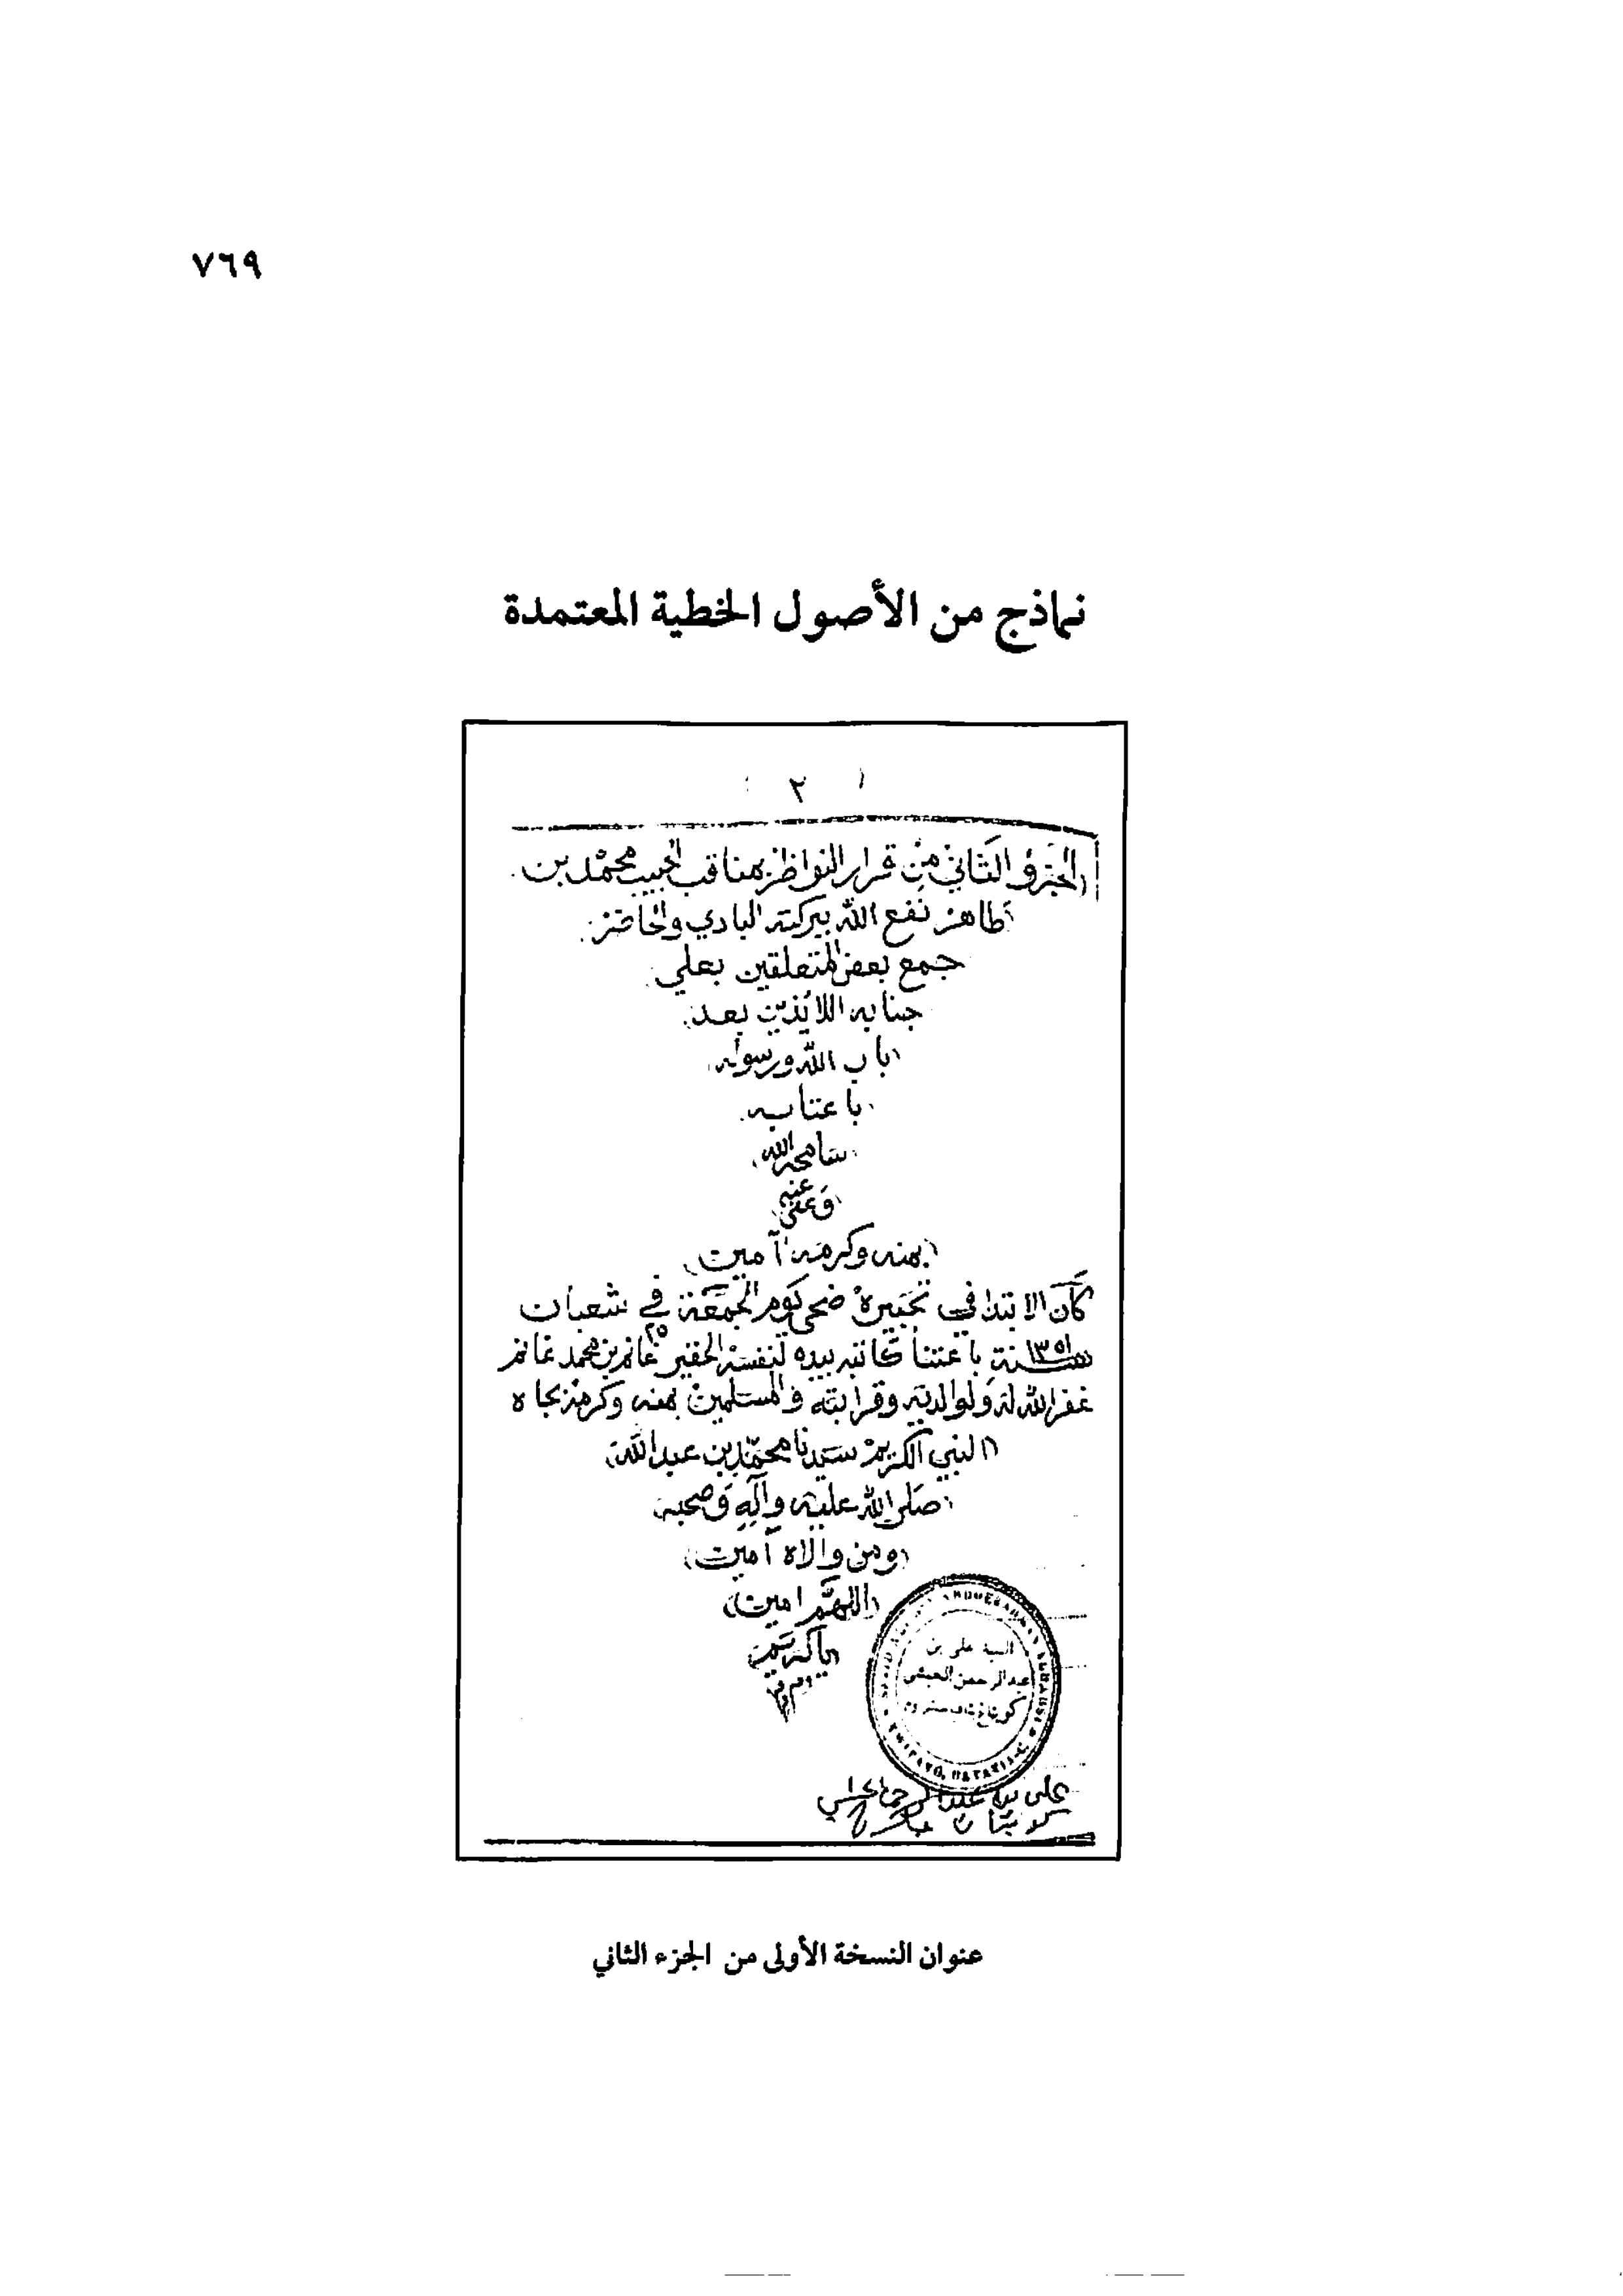 ٧٦٩
نماذج من الأصول الخطية المعتمدة
٢
الجزؤ الثاني من قرار النواظر بمناقب الحبيب محمد بن
طاهر نفع الله ببركته البادي والحاضر
جمع بعض المتعلقين بعلي
جنابه اللائذين بعد
باب الله ورسوله
باعتابه
سامحه الله
وعفى عنه
بمنه وكرمه آمين
كان الابتدا في تحبيره ضحى يوم الجمعة في شعبان ٢٥
سنة ١٣٥١ باعتنا كاتبه بيده لنفسه الحقير غانم بن محمد غانم
غفر الله له ولوالديه وقرابته والمسلمين بمنه وكرمه بجاه
النبي الكريم سيدنا محمد بن عبد الله
صلى الله عليه وآله وصحبه
ومن والاه آمين
اللهم امين
ياكريم
السيد علي بن
عبدالرحمن الحبشي
علي بن عبد الرحمن الحبشي
عنوان النسخة الأولى من الجزء الثاني